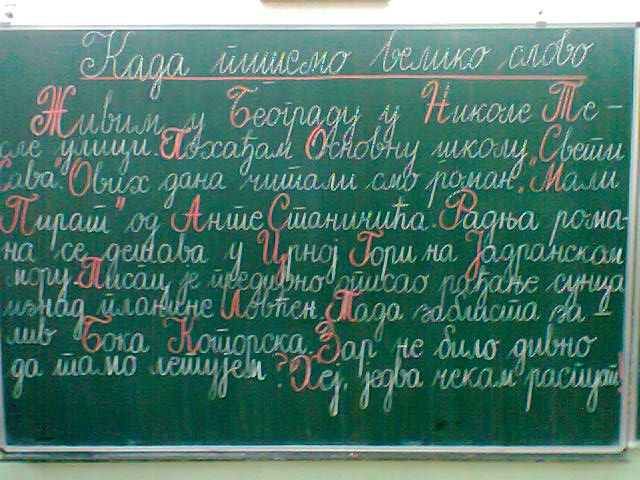 Када пишемо велико слово
Живим у Београду у Николе Те-
сле улици. Похађам Основну школу „Свети
Сава". Ових дана читали смо роман „Мали
Пират" од Анте Станичића. Радња рома-
на се дешава у Црној Гори на Јадранском
мору. Писац је предивно описао рађање сунца
изнад планине Ловћен. Тада заблиста за-
лив Бока Которска. Зар не било дивно
да тамо летујем? Хеј, једва чекам распуст!